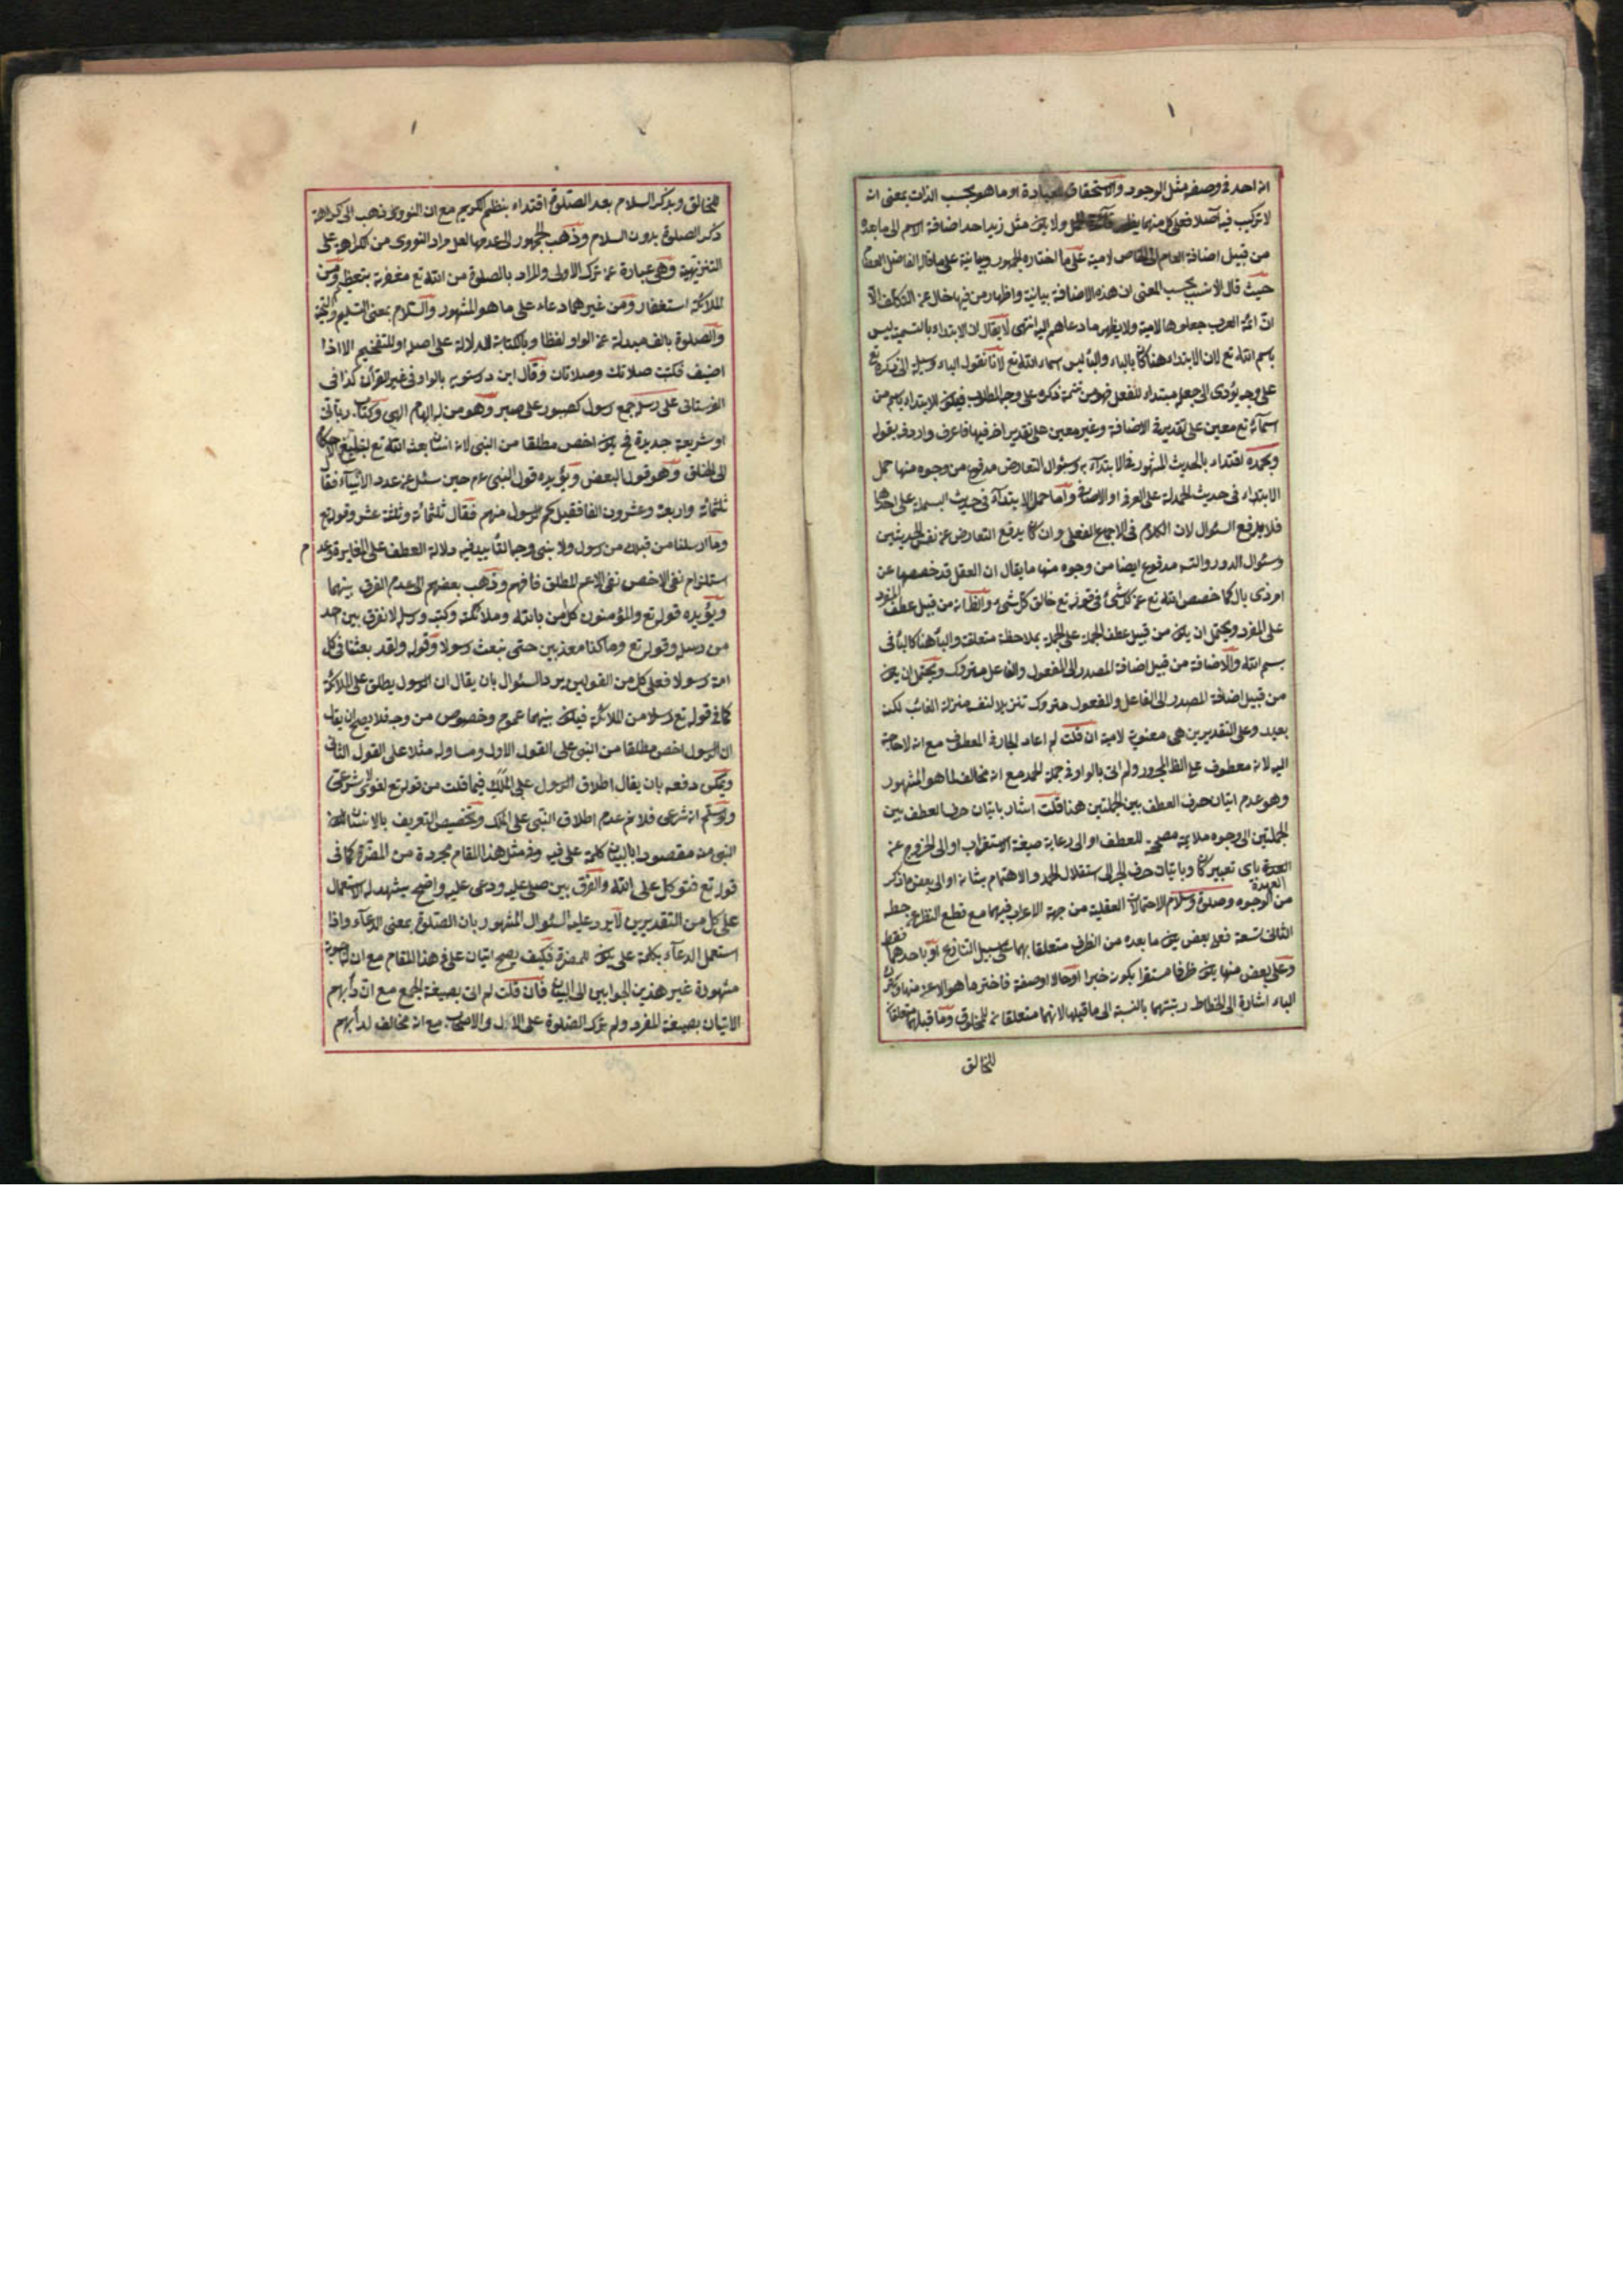 ١
انه احد في وصفه مثل الوجود والاستحقاق للعبادة او ما هو بحسب الذات بمعنى انه
لا تركب فيه اصلا فعلى كل منهما ولا يكن مثل زيد احد اضافة الاسم الى ما بعده
من قبيل اضافة العام الى الخاص لامية على ما اختاره الجمهور وبيانية على ما قال الفاضل العصام
حيث قال الانسب بحسب المعنى ان هذه الاضافة بيانية واظهار من فيها خال عن التكلف الا
ان ائمة العرب جعلوها لامية ولا يظهر ما دعاهم اليه انتهى لا يقال ان الابتداء بالتسمية ليس
باسم الله تع لان الابتداء هنا كان بالباء والباء ليس اسماء الله تع لانا نقول الباء وسيلة الى ذكره تع
على وجه يؤدى الى جعله مبتداء للفعل فهو من تتمة ذكره على وجه المطلوب فيكن الابتداء باسم من
اسمائه تع معين على تقدير في الاضافة وغير معين على تقدير اخر فيها فاعرف واردفه بقوله
وبحمده اقتداء بالحديث المشهور في الابتداء به وسؤال التعارض مدفوع من وجوه منها حمل
الابتداء في حديث الحمدلة على العرفى او الاضافى واما حمل الابتداء في حديث البسملة على احدهما
فلا يدفع السؤال لان الكلام في الاجماع الفعلى وان كان يدفع التعارض عن نفس الحديثين
وسئوال الدور والتسه مدفوع ايضا من وجوه منها ما يقال ان العقل قد خصصها عن
امر ذى بال كما خصص الله تع عن كل شئ في قوله تع خالق كل شئ والظ انه من قبيل عطف المفرد
على المفرد ويحتمل ان يكن من قبيل عطف الجملة على الجملة بملاحظة متعلقه والباء هنا كالباء في
بسم الله والاضافة من قبيل اضافة المصدر الى المفعول والفاعل متروك ويحتمل ان يكن
من قبيل اضافة المصدر الى الفاعل والمفعول متروك تنزيلا لنفسه منزلة الغائب لكنه
بعيد وعلى التقديرين هي معنوية لامية ان قلت لم اعاد الجار في المعطوف مع انه لا حاجة
اليه لانه معطوف على الظ المجرور ولم اتى بالواو في جملة الحمد مع انه مخالف لما هو المشهور
وهو عدم اتيان حرف العطف بين الجملتين هنا قلت اشار باتيان حرف العطف بين
الجملتين الى وجوه ملايمة مصححة للعطف او الى رعاية صيغة الاستغراب او الى الخروج عن
العهدة باى تعبير كان وباتيان حرف الجر الى استقلال الحمد والاهتمام بشانه او الى بعض ما ذكر
من الوجوه وصلوة وسلام الاحتمالات العقلية من جهة الاعراب فيهما مع قطع النظر عن جملة
الثانى تسعة فعلى بعض يكن ما بعده من الظرف متعلقا بهما على سبيل التنازع او باحدهما فقط
وعلى بعض منها يكن ظرفا مستقرا بكونه خبرا او حالا او صفة فاختر ما هو الاعز منها وترك
الباء اشارة الى انحطاط رتبتهما بالنسبة الى ما قبلها لانهما متعلقان للمخلوق وما قبلهما متعلقان
للخالق
١
للخالق وبذكر السلام بعد الصلوة اقتداء بنظم الكريم مع ان النووى ذهب الى كراهة
ذكر الصلوة بدون السلام وذهب الجمهور الى عدمها لعل مراد النووى من الكراهة على
التنزيهية وهي عبارة عن ترك الاولى والمراد بالصلوة من الله تع مغفرة بتعظيم ومن
الملائكة استغفار ومن غيرهما دعاء على ما هو المشهور والسلام بمعنى التسليم والتحية
والصلوة بالف مبدلة عن الواو لفظا وبالكتابة للدلالة على اصله او للتفخيم الا اذا
اضيف فكتب صلاتك وصلاتان وقال ابن درستويه بالواو في غير القرآن كذا في
القهستانى على رسله جمع رسول كصبور على صبر وهو من له الهام الهى وكتاب ربانى
او شريعة جديدة فح يكن اخص مطلقا من النبى لانه انسان بعثه الله تع لتبليغ الاحكام
الى الخلق وهو قول البعض ويؤيده قول النبى عم حين سئل عن عدد الانبياء فقال
ثلثمائة واربعة وعشرون الفا فقيل كم الرسول منهم فقال ثلثمائة وثلثة عشر وقوله تع
وما ارسلنا من قبلك من رسول ولا نبى وجه التأييد فيه دلالة العطف على المغايرة وعدم
استلزام نفى الاخص نفى الاعم المطلق فافهم وذهب بعضهم الى عدم الفرق بينهما
ويؤيده قوله تع والمؤمنون كل من بالله وملائكته وكتبه ورسله لا نفرق بين احد
من رسله وقوله تع وما كنا معذبين حتى نبعث رسولا وقوله ولقد بعثنا في كل
امة رسولا فعلى كل من القولين يرد السئوال بان يقال ان الرسول يطلق على الملائكة
كما في قوله تع رسلا من الملائكة فيكن بينهما عموم وخصوص من وجه فلا يصح ان يقال
ان الرسول اخص مطلقا من النبى على القول الاول ومساو له مثلا على القول الثانى
ويمكن دفعه بان يقال اطلاق الرسول على الملك فيما قلت من قوله تع لغوى لا شرعى
ولو سلم انه شرعى فلا نم عدم اطلاق النبى على الملك وتخصيص التعريف بالانسان لكونه
النبى منه مقصودا بالبيان كلمة على فيه وفي مثل هذا المقام مجردة من المضرة كما في
قوله تع فتوكل على الله والفرق بين صلى عليه ودعى عليه واضح يشهد له الاستعمال
على كل من التقديرين لا يرد عليه السئوال المشهور بان الصلوة بمعنى الدعاء واذا
استعمل الدعاء بكلمة على يكن للمضرة فكيف يصح اتيان على في هذا المقام مع ان له اجوبة
مشهورة غير هذين الجوابين الى البيان فان قلت لم اتى بصيغة الجمع مع ان دأبهم
الاتيان بصيغة المفرد ولم ترك الصلوة على الآل والاصحاب مع انه مخالف لدأبهم